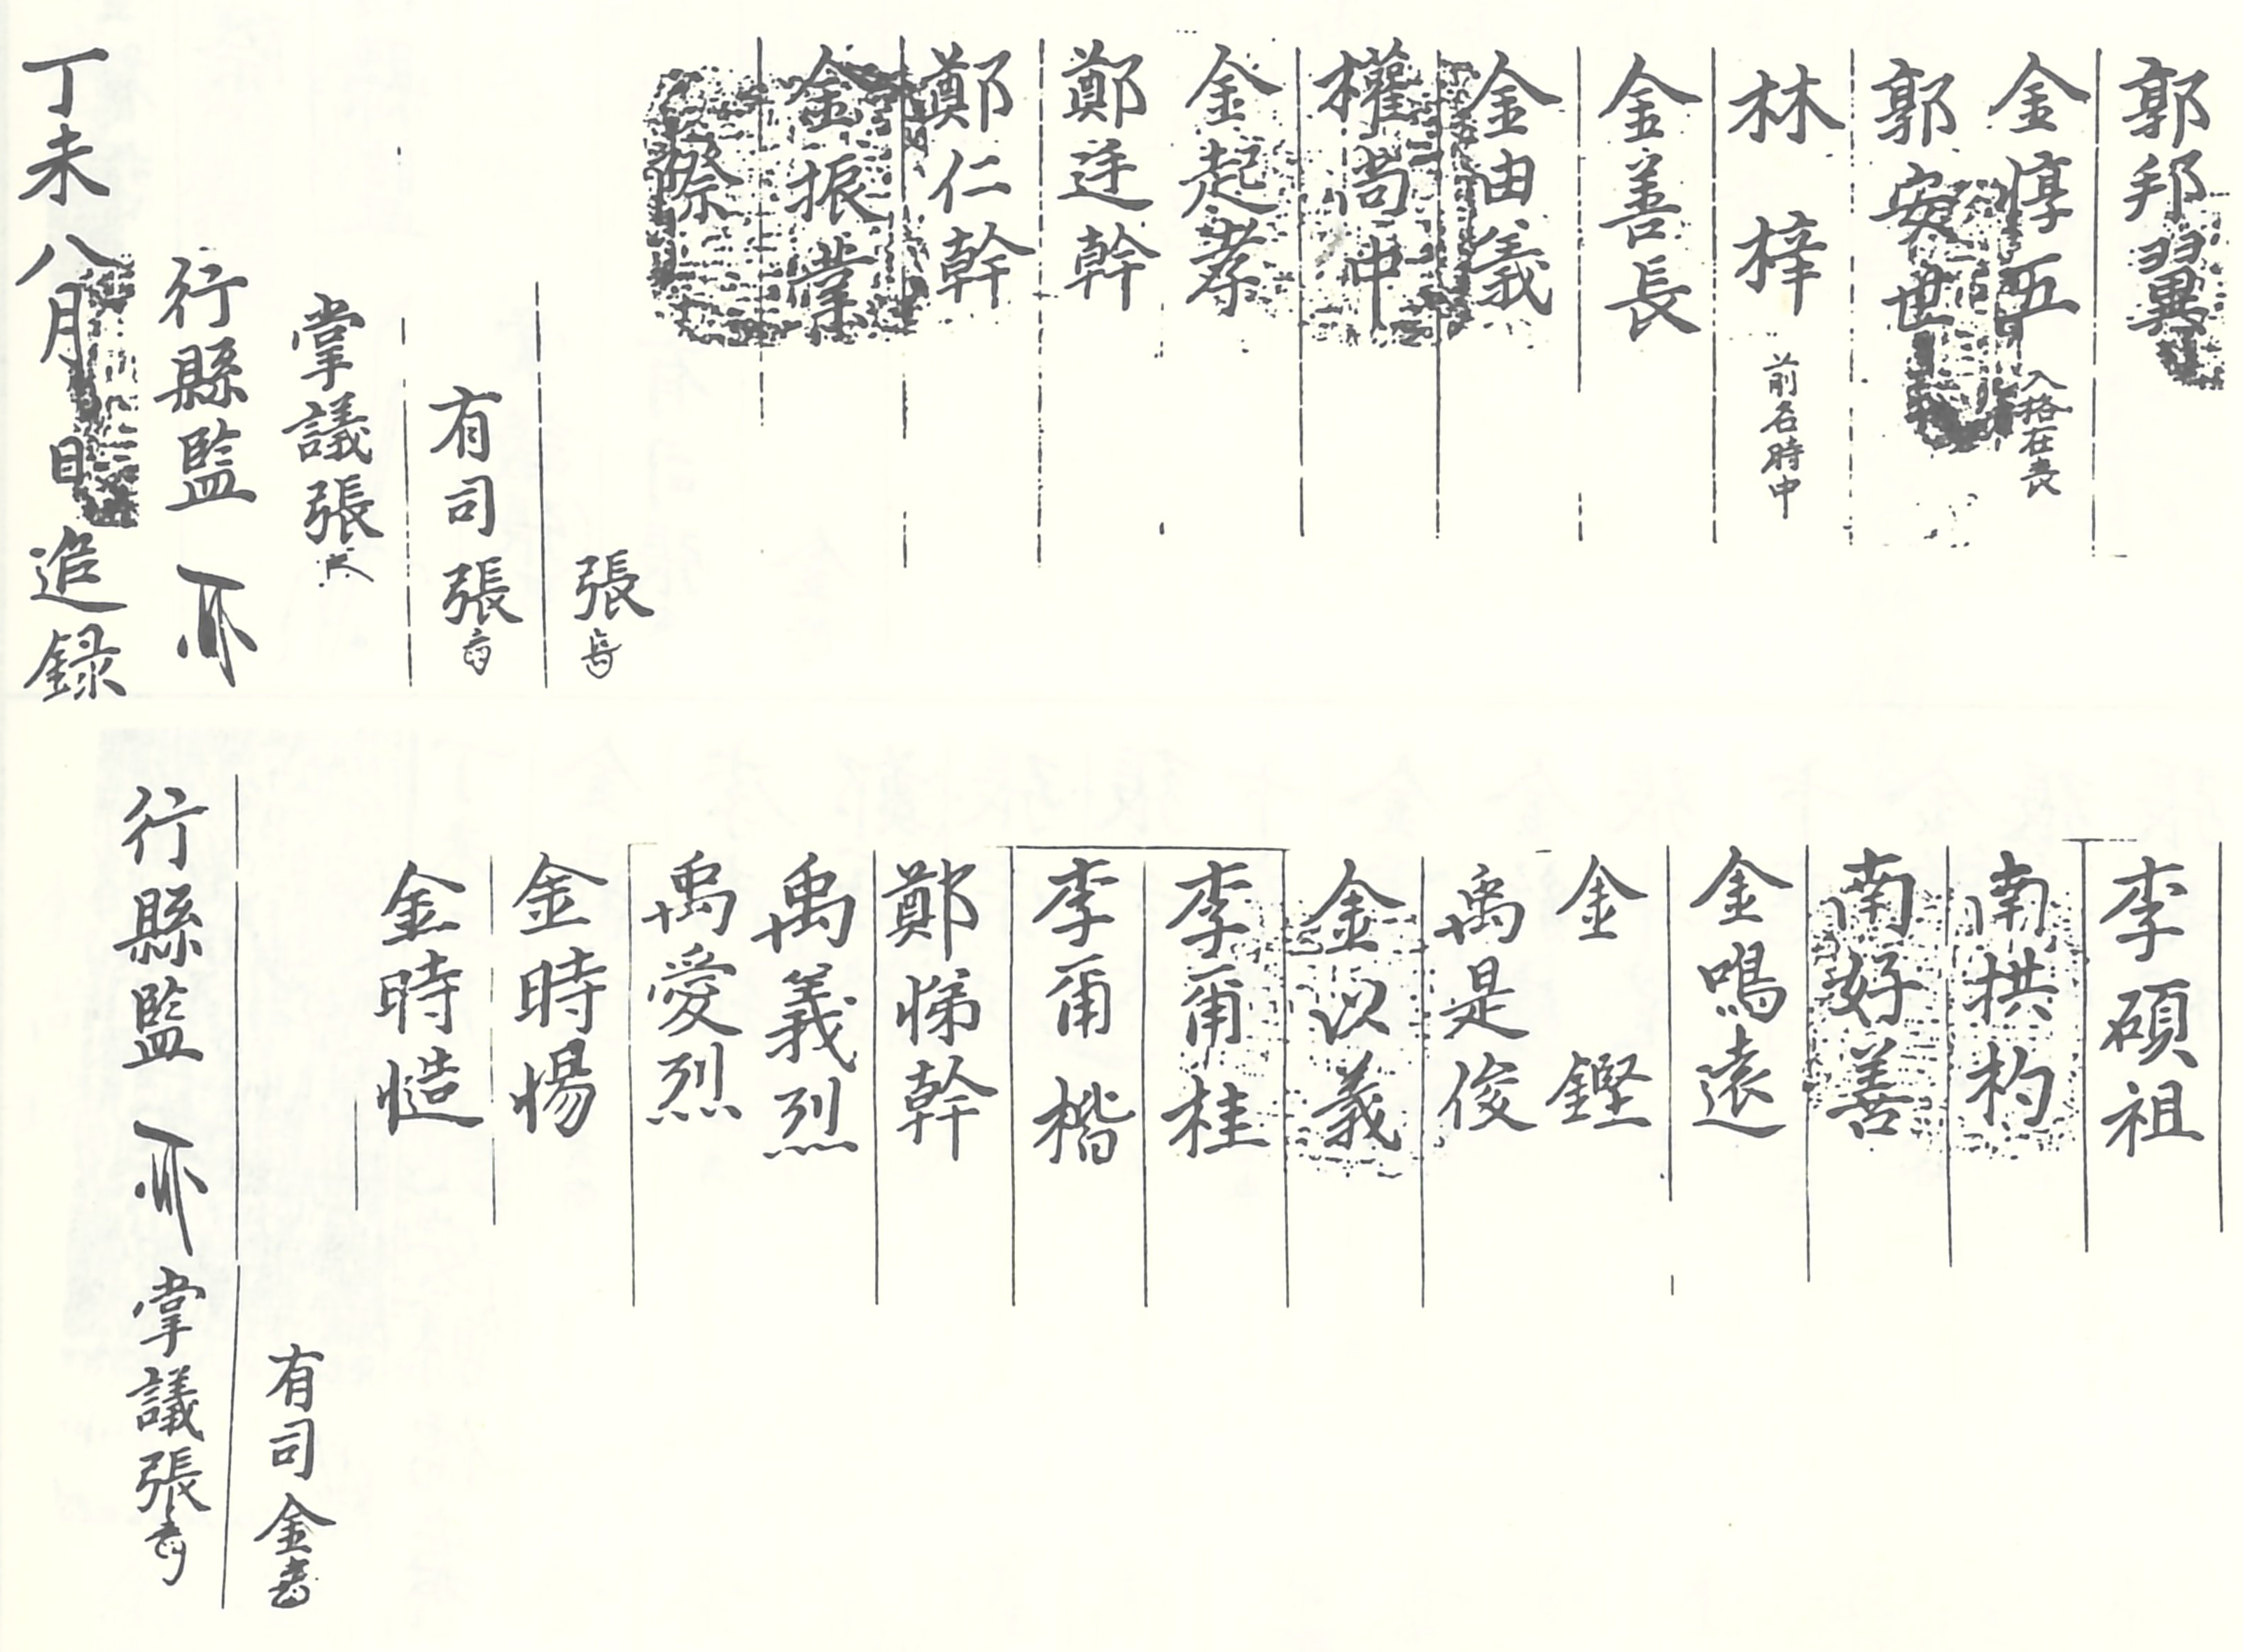 郭邦翼
金惇五 入格在喪
郭安世
林梓 前名時中
金善長
金由義
權尚中
金起孝
鄭廷幹
鄭仁幹
金振業
際
張
有司 張
掌議 張
行縣監
丁未八月 日 追録
李碩祖
南拱杓
南好善
金鳴遠
金鏗
禹是俊
金以義
李爾桂
李爾楷
鄭悌幹
禹義烈
禹愛烈
金時惕
金時慥
有司 金
行縣監 掌議 張